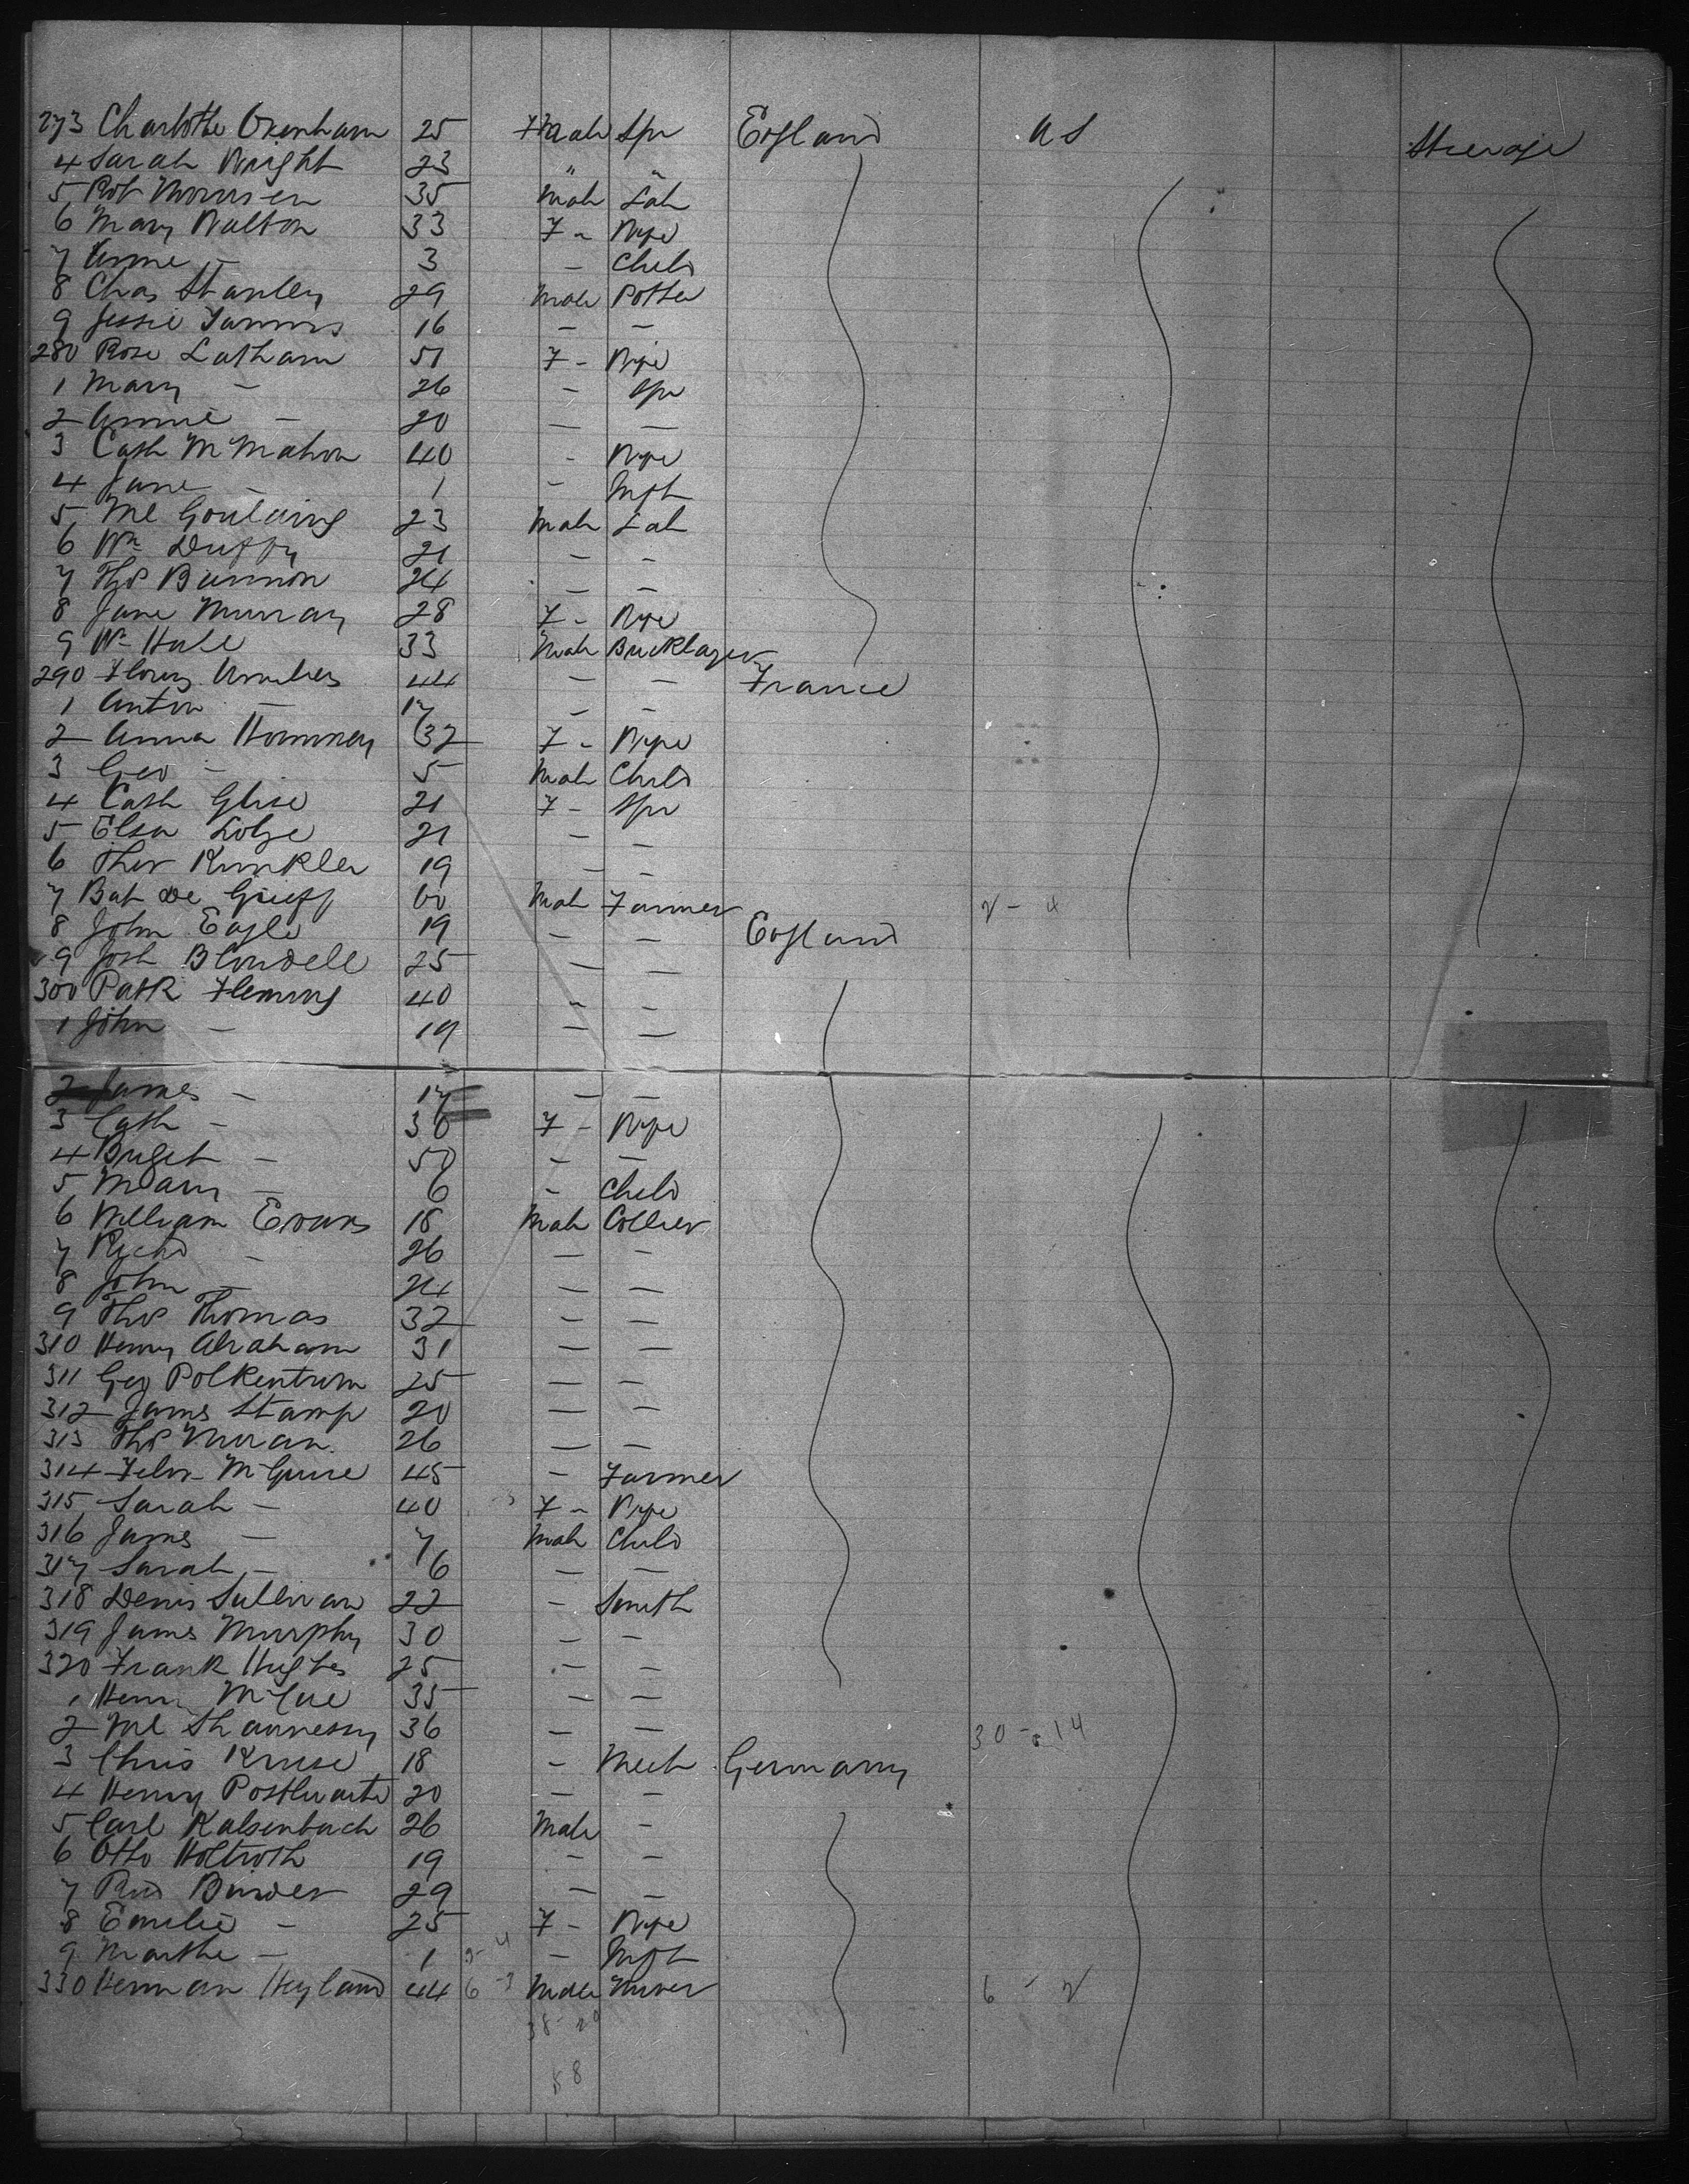 273 Charlotte Oxenham 25 Female Spr England U S Steerage
4 Sarah Wright 23 " "
5 Rob Morrisen 35 Male Lab
6 Mary Walton 33 F - Wife
7 Annie - 3 - Child
8 Chas Stanley 29 Male Potter
9 Jessie 16 - -
280 Rose Latham 51 F - Wife
1 Mary - 26 - Spr
2 Annie - 20 - -
3 Cath McMahon 40 - Wife
4 Jane - 1 - Inft
5 Ml Goulding 23 Male Lab
6 Wm Duffy 21 - -
7 Thos Bannon 24 - -
8 Jane Murray 28 F - Wife
9 Wm Hall 33 Male Bricklayer
290 44 - - France
1 Anton - 17 - -
2 Anna Hommey 32 F - Wife
3 Geo - 5 Male Child
4 Cath Glise 21 F - Spr
5 Elsa Lolze 21 - -
6 Ther Kunkler 19 - -
7 Bat De Grieff 60 Male Farmer 2 - 4
8 John Eagle 19 - - England
9 Josh Blondell 25 - -
300 Patk Fleming 40 - -
1 John - 19 - -
2 James - 17 - -
3 Cath - 30 F - Wife
4 Bridget - 50 - -
5 Mary - 6 - Child
6 William Evans 18 Male Collier
7 Richd - 26 - -
8 John - 24 - -
9 Thos Thomas 32 - -
310 Henry Abraham 31 - -
311 Geo Polkentrom 25 - -
312 James Stamp 20 - -
313 Thos Moran 26 - -
314 Felix McGuire 45 - Farmer
315 Sarah - 40 F - Wife
316 James - 7 Male Child
317 Sarah - 6 - -
318 Denis Sullivan 22 - Smith
319 James Murphy 30 - -
320 Frank Hughes 25 - -
1 Henry McCue 35 - -
2 Ml Shannessy 36 - - 30 - 14
3 Chris Kruse 18 - Mech Germany
4 Henry Posthuarte 20 - -
5 Carl Kalsenbach 26 Male -
6 Otto Holtroth 19 - -
7 Rud Binder 29 - -
8 Emilie - 25 F - Wife
9 Marthe - 1 2 - 4 - Inft
330 Herman Heyland 44 6 - 3 Male Miner 6 - 2
38 - 20
58